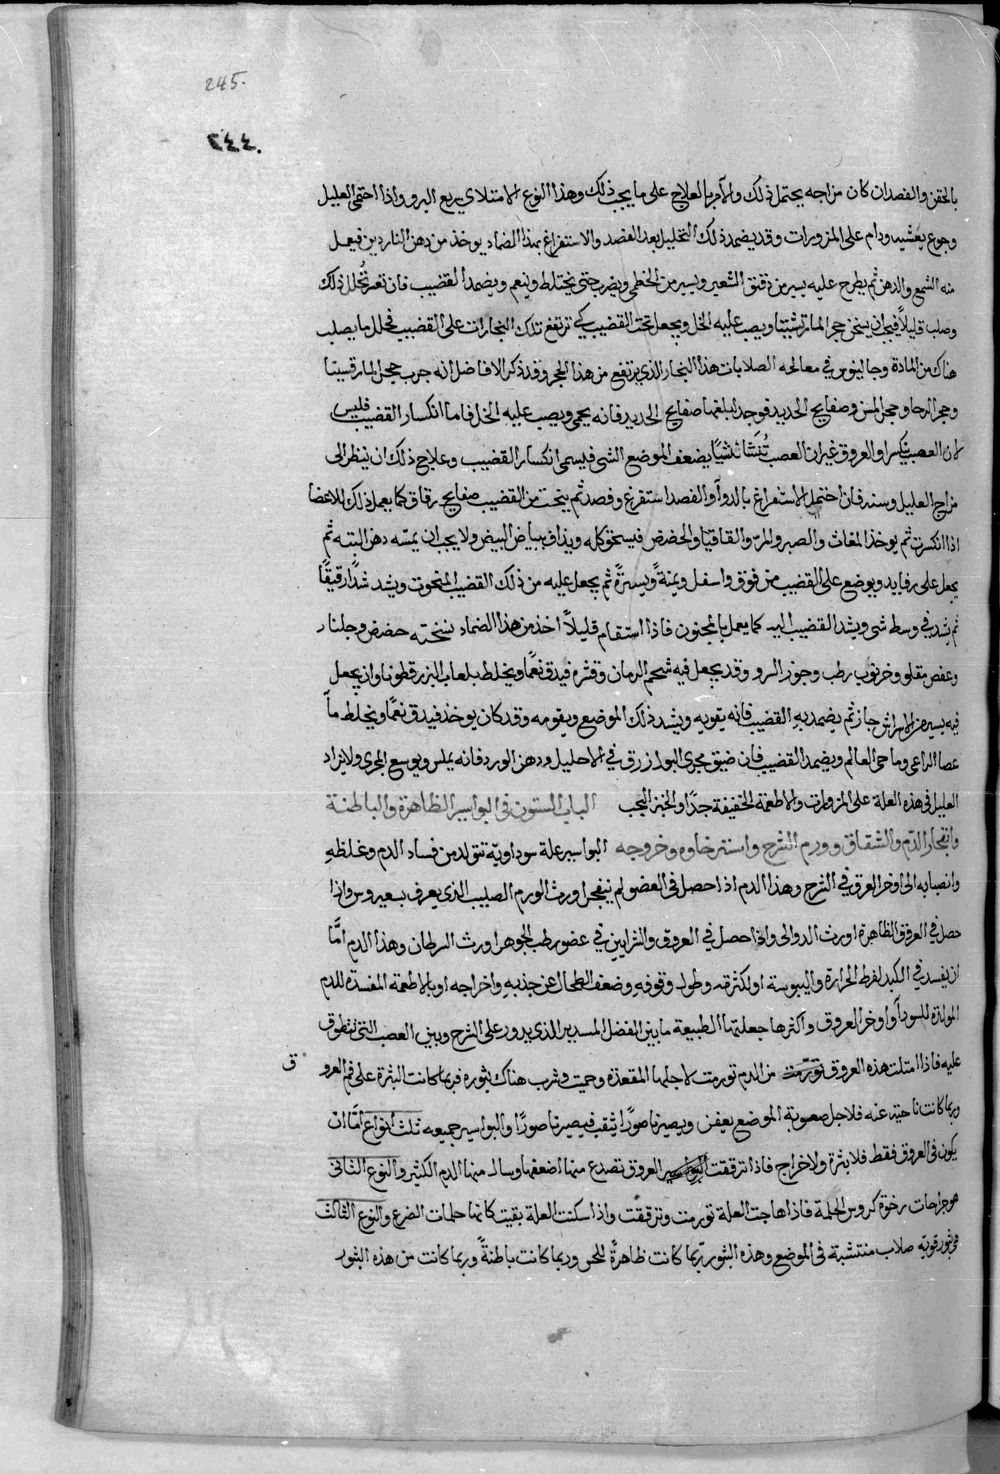 245.
٢٤٤.
بالحقن والفصدان كان مزاجه يحتمل ذلك والآمر بالعلاج على ما يجب ذلك وهذا النوع الامتلاي سريع البرو واذا احتمى العليل
وجوع بعشيه ودام على المزورات وقد يضمد ذلك التحليل بعد الفصد والاستفراغ بهذا الضماد يوخذ من دهن الناردين فيعمل
منه الشمع والدهن ثم يطرح عليه يسير من دقيق الشعير ويسير من الخطمى ويضرب حتى يختلط وينعم ويضمد القضيب فان تعسر تحلل ذلك
وصلب قليلاً فيجب ان يسخن حجر المارقشيتا ويصب عليه الخل ويجعل تحت القضيب كى ترتفع تلك البخارات على القضيب فتحلل ما يصلب
هناك من المادة وجالينوس في معالجه الصلابات هذا البخار الذي يرتفع من هذا الحجر وقد ذكر الافاضل انه جرب حجر المارقسيتا
وحجر الرحا وحجر المسن وصفايح الحديد فوجد ابلغها صفايح الحديد فانه يحمى ويصب عليه الخل فاما انكسار القضيب فليس
لان العصب ينكسر او العروق غير ان العصب يضعف الموضع الشى فيسمى انكسار القضيب وعلاج ذلك ان ينظر الى
مزاج العليل وسنه فان احتمل الاستفراغ بالدوآ والفصد استفرغ وفصد ثم ينحت من القضيب صفايح رقاق كما يعمل ذلك للاعضا
اذا انكسرت ثم يوخذ المغاث والصبر والمر والقاقيا والحضض فيسحق كله ويذاف ببياض البيض ولا يجب ان يمسّه دهن البته ثم
يجعل على رفايد ويوضع على القضيب من فوق واسفل ويمنةً ويسرةً ثم يجعل عليه من ذلك القضيب المنحوت ويشد شدًا رقيقًا
ثم يشد في وسط شى ويشد القضيب اليه كما يعمل بالمجنون فاذا استقام قليلاً اخذ من هذا الضماد نسخته حضض وجلنار
وعفص مقلو وخرنوب رطب وجوز السرو وقد يجعل فيه شحم الرمان وقشره فيدق نعمًا ويخلط بلعاب البزرقطونا وان يجعل
فيه يسير من الاسراش جاز ثم يضمد به القضيب فانه يقويه ويشد ذلك الموضع ويقومه وقد كان يوخذ فيدق نعمًا ويخلط مآ
عصا الراعى وما حى العالم ويضمد القضيب فان ضيق مجرى البول زرق في الاحليل ودهن الورد فانه يملس ويوسع المجرى ولا يزاد
العليل في هذه العلة على المزورات والاطعمة الخفيفة جدًا والخبز المجيب الباب الستون في البواسير الظاهرة والباطنة
وانفجار الدم والشقاق وورم الشرج واسترخاوه وخروجه البواسير علة سوداويّة تتولد من فساد الدم وغلظه
وانصبابه الى اوخر العرق في الشرج وهذا الدم اذا حصل في العضو لم ينفجر اورث الورم الصليب الذي يعرف بسقيروس واذا
حصل في العروق الظاهرة اورث الدوالى واذا حصل في العروق والشرايين في عضو رطب الجوهر اورث السرطان وهذا الدم امّا
ان يفسد في الكبد لفرط الحرارة واليبوسة او لكثرته وطول وقوفه وضعف الطحال عن جذبه واخراجه او بالاطعمة المفسدة للدم
المولدة للسودآ واوخر العروق وآكثرها جعلتها الطبيعة ما بين الفضل المسدير الذي يدور على الشرج وبين العصب التى ينطوق
عليه فاذا امتلت هذه العروق من الدم تورمت لاجلها المقعدة وحميت وضرب هناك بثوره فربما كانت البثرة على فم العرو
ق
وربما كانت ناحية عنه فلاجل صعوبة الموضع يعفن ويصير ناصورًا يثقب فيصير ناصورًا والبواسير جميعه ثلث انواع امّا ان
يكون في العروق فقط فلا بثرة ولا خراج فاذا ترققت العروق تصدع منها اضعفها وسال منها الدم الكثير والنوع الثانى
هو جراحات رخوة كروس الحلمة فاذا هاجت العلة تورمت وترققت واذا سكنت العلة بقيت كانها حلمات الضرع والنوع الثالث
هو بثور قويه صلاب منتشبة في الموضع وهذه البثور ربّما كانت ظاهرةً للحس وربما كانت باطنةً وربما كانت من هذه البثور